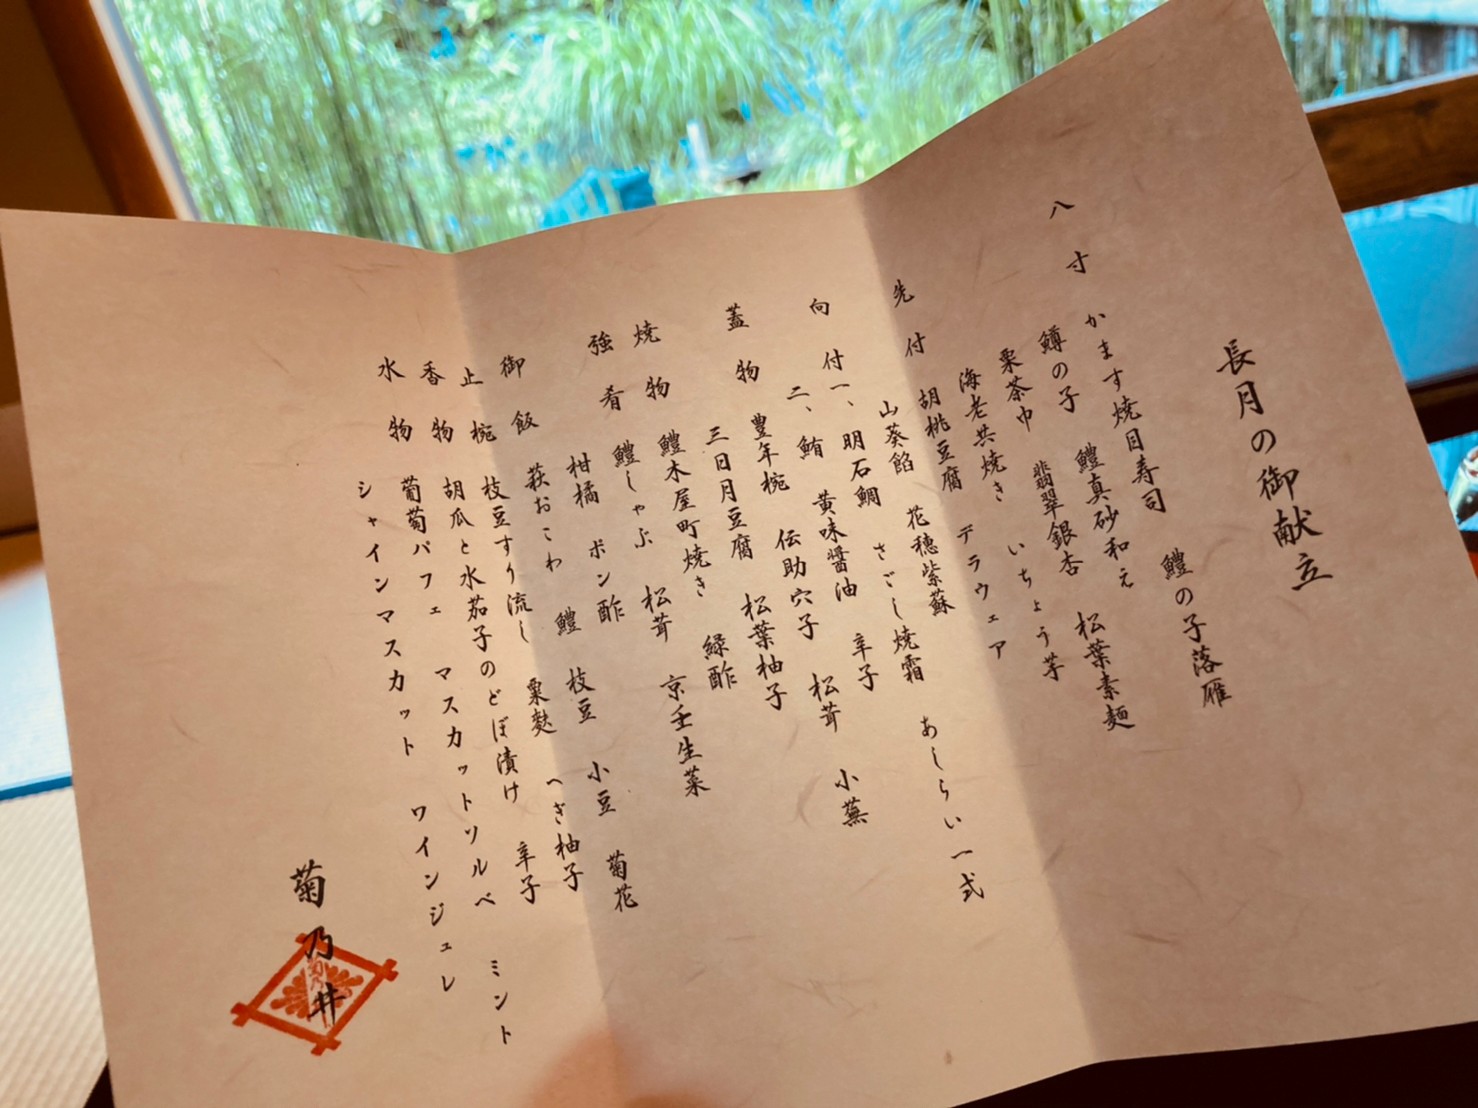 長月の御献立
八寸 かます焼目寿司 鱧の子落雁
鱒の子 鱧真砂和え 松葉素麺
栗茶巾 翡翠銀杏 いちょう芋
海老共焼き テラウェア
先付 胡桃豆腐
山葵餡 花穂紫蘇
向付 一、明石鯛 さごし焼霜 あしらい一式
二、鮪 黄味醤油 辛子
蓋物 豊年椀 伝助穴子 松茸 小蕪
三日月豆腐 松葉柚子
焼物 鱧木屋町焼き 緑酢
強肴 鱧しゃぶ 松茸 京壬生菜
柑橘 ポン酢
御飯 萩おこわ 鱧 枝豆 小豆 菊花
止椀 枝豆すり流し 粟麩 へぎ柚子
香物 胡瓜と水茄子のどぼ漬け 辛子
水物 葡萄パフェ マスカットソルベ ミント
シャインマスカット ワインジュレ
菊乃井